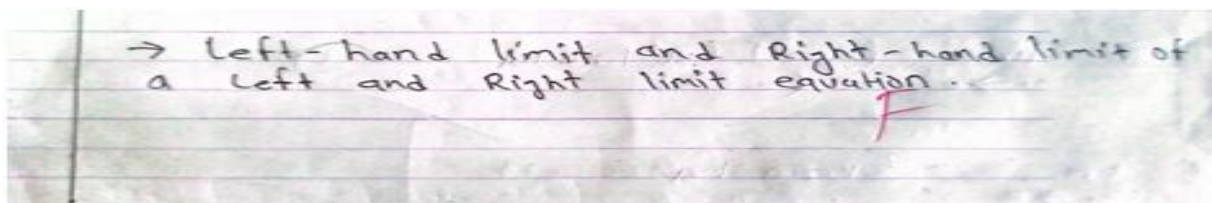 → Left-hand limit and Right-hand limit of
a Left and Right limit equation.
F